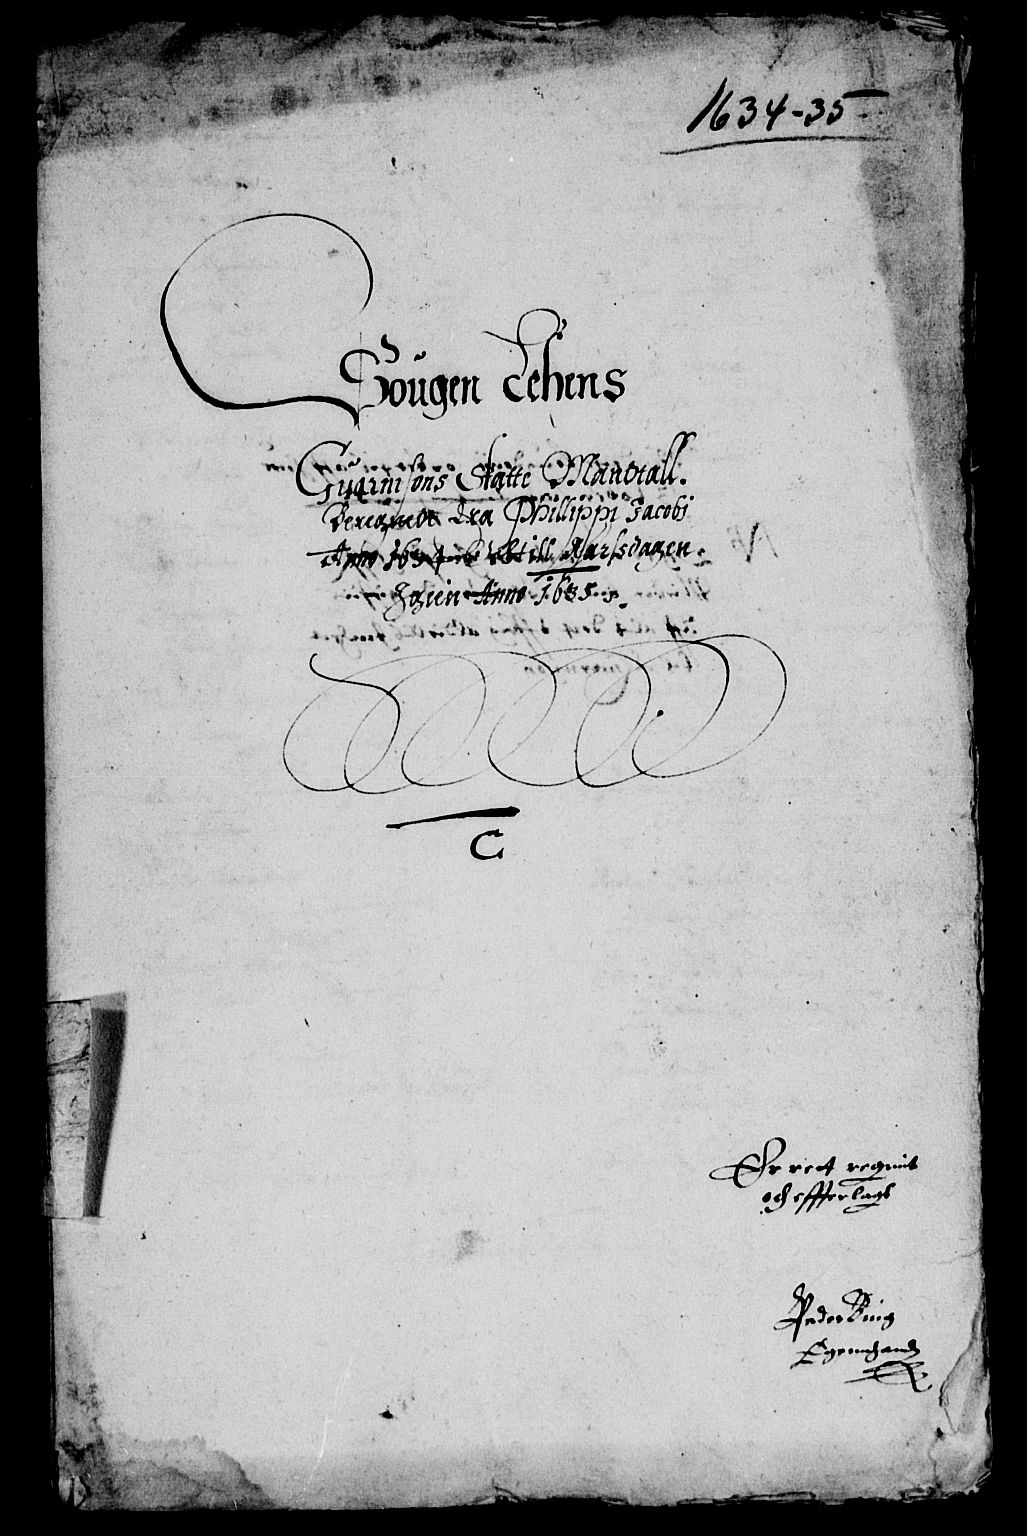 1634-35
Sougen Lehens
Guarnisons Skatte Mandtall.
Beregnedt dra Phillippi Jacobi
Anno 1634 och till dagen
Igien Anno 1635.
C
Er rect regnit
och effterlagt
Peder Bing
Egennhandt